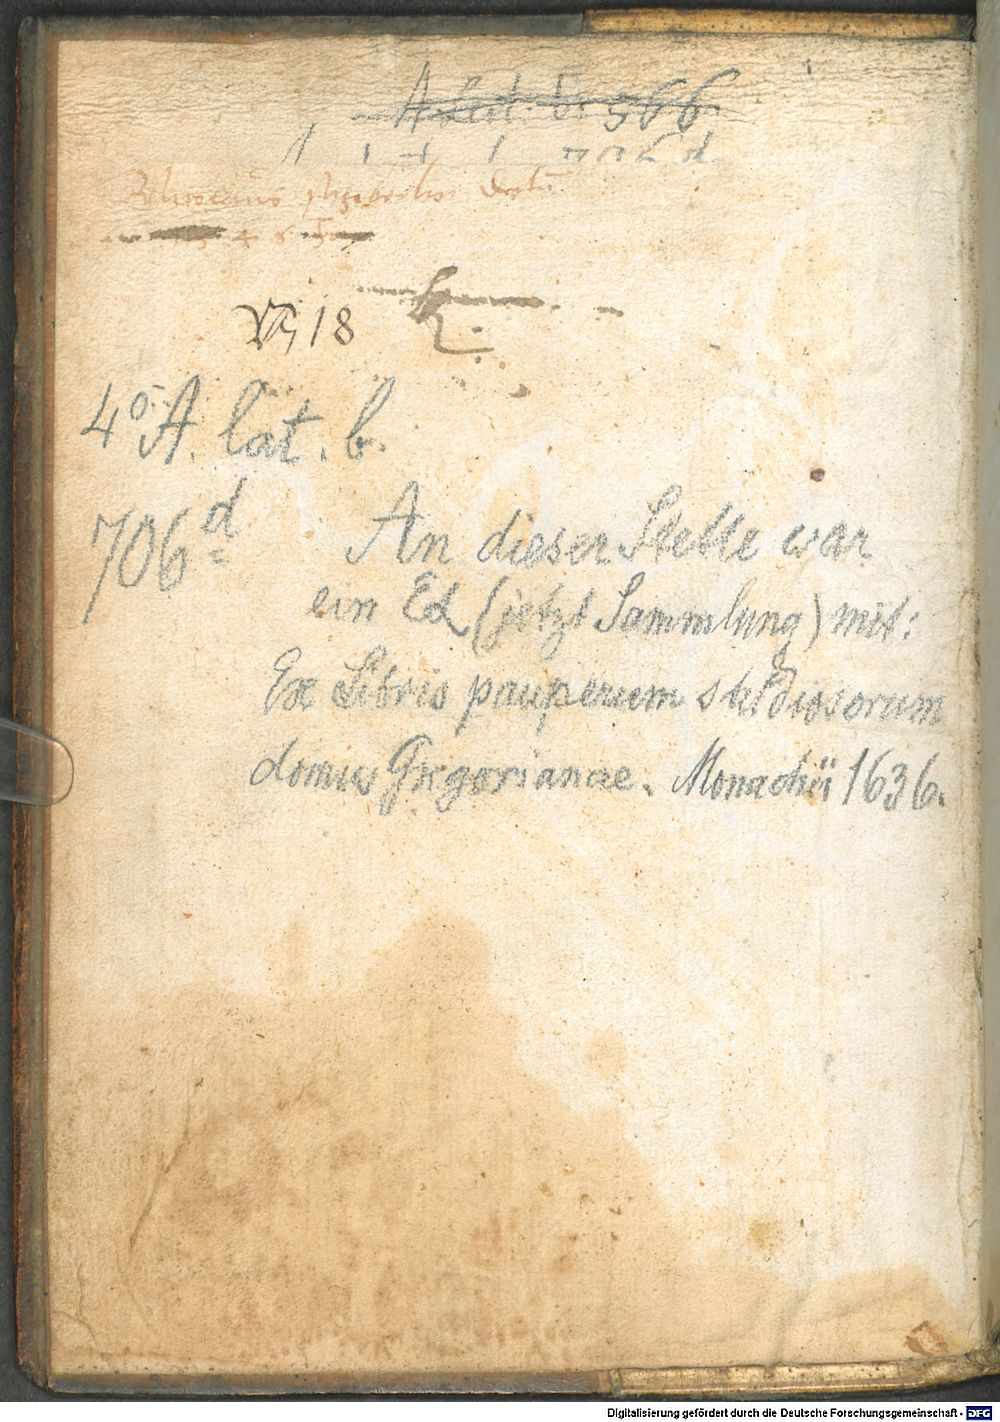 A lat. b. 566
4 6
VI, 18
4° A. lat. b.
706 d
An dieser Stelle war
ein Ex (jetzt Sammlung) mit:
Ex Libris pauperum studiosorum
domus Gregorianae. Monachii 1636.
Digitalisierung gefördert durch die Deutsche Forschungsgemeinschaft - DFG